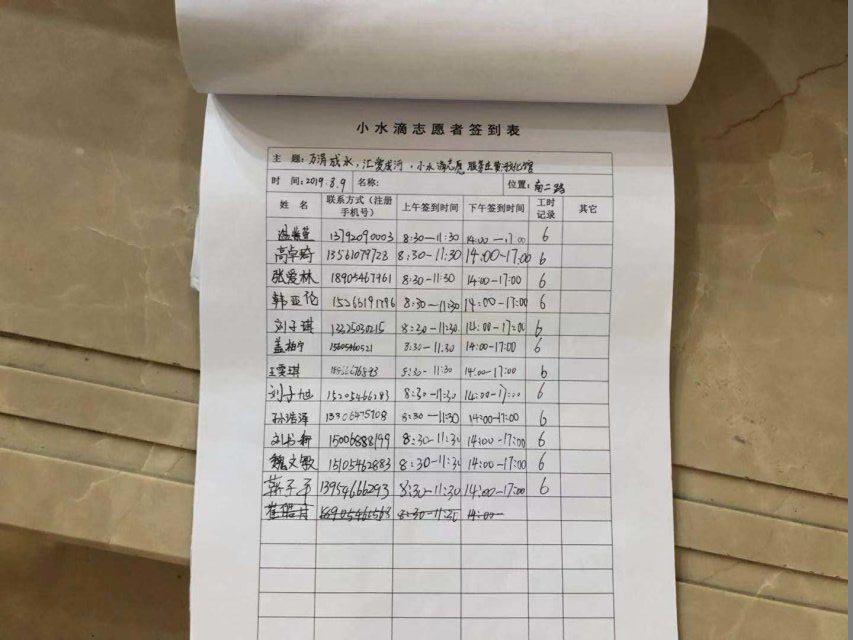 小水滴志愿者签到表
主 题：万涓成水，汇爱成河，小水滴志愿服务在黄河文化馆
时 间：2019.8.9 名称： 位置：南二路
姓 名 联系方式（注册手机号） 上午签到时间 下午签到时间 工时记录 其它
13792090003 8:30-11:30 14:00-17:00 6
高卓琦 13561079723 8:30-11:30 14:00-17:00 6
张爱林 18905467961 8:30-11:30 14:00-17:00 6
韩亚伦 15265191796 8:30-11:30 14:00-17:00 6
刘子琪 13325030215 8:30-11:30 14:00-17:00 6
盖柏宁 15605460521 8:30-11:30 14:00-17:00 6
王雯琪 8:30-11:30 14:00-17:00 6
刘子旭 15205466283 8:30-11:30 14:00-17:00 6
孙浩泽 13306475708 8:30-11:30 14:00-17:00 6
刘书轩 15006888199 8:30-11:30 14:00-17:00 6
魏文敏 15105462883 8:30-11:30 14:00-17:00 6
韩子平 13954666293 8:30-11:30 14:00-17:00 6
8:30-11:30 14:00-